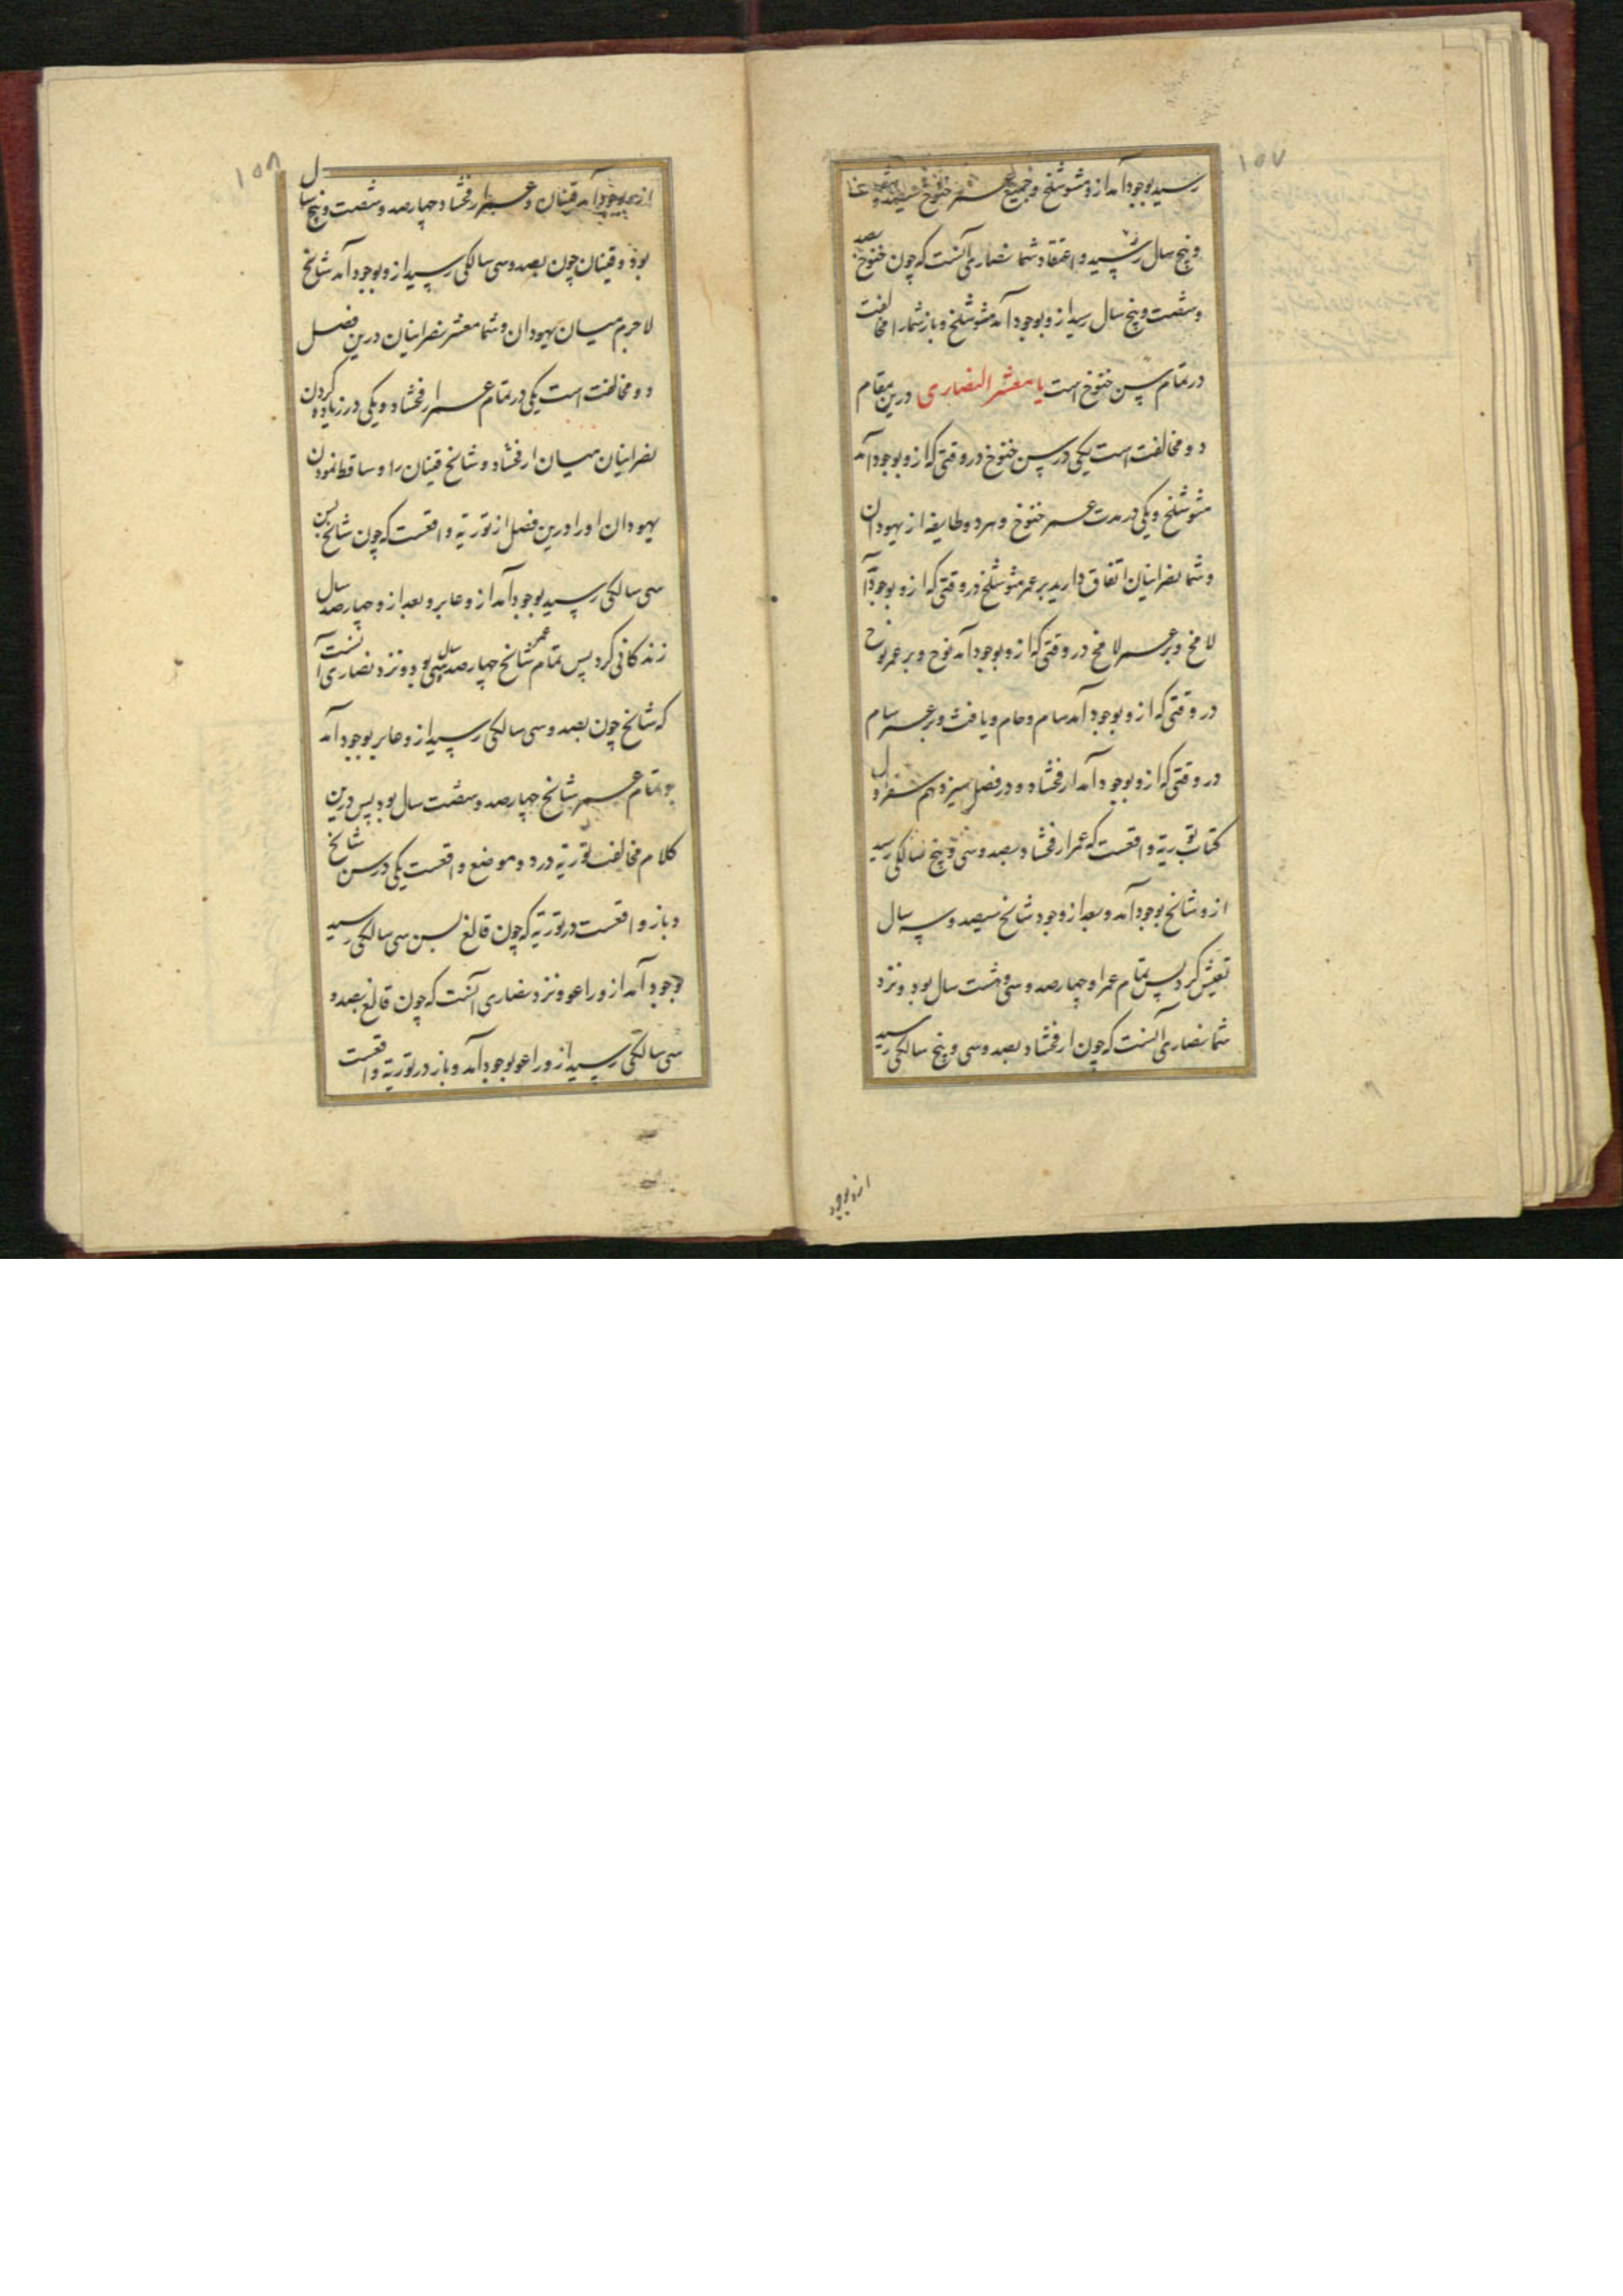 ۱۵۷
رسید بوجود آمد ازو متوشلخ و جمیع عمر خنوخ سیصد و شصت
و پنج سال رسید و اعتقاد شما نصاری آنست که چون خنوخ بصد
و شصت و پنج سال رسید ازو بوجود آمد متوشلخ و باز شما را مخالفت
در تمام سن خنوخ است یا معشر النصاری درین مقام
دو مخالفت است یکی در سن خنوخ در وقتی که ازو بوجود آمد
متوشلخ و یکی در مدت عمر خنوخ و هر دو طایفه از یهودان
و شما نصرانیان اتفاق دارید بر عمر متوشلخ در وقتی که ازو بوجود آمد
لامخ و بر عمر لامخ در وقتی که ازو بوجود آمد نوح و بر عمر نوح
در وقتی که ازو بوجود آمد سام و حام و یافث و بر عمر سام
در وقتی که ازو بوجود آمد ارفخشاد و در فصل سیزدهم سفر اول
کتاب توریة واقعست که عمر ارفخشاد بصد و سی و پنج سالکی رسید
ازو شالخ بوجود آمد و بعد از وجود شالخ سیصد و سه سال
تعیش کرد پس تمام عمر او چهارصد و سی و هشت سال بود و نزد
شما نصاری آنست که چون ارفخشاد بصد و سی و پنج سالکی رسید
ازو بوجود
۱۵۸
ازو بوجود آمد قینان و عمر ارفخشاد چهارصد و شصت و پنج سال
بود و قینان چون بصد و سی سالکی رسید ازو بوجود آمد شالخ
لاجرم میان یهودان و شما معشر نصرانیان درین فصل
دو مخالفت است یکی در تمام عمر ارفخشاد و یکی در زیاده کردن
نصرانیان میان ارفخشاد و شالخ قینان را و ساقط نمودن
یهودان او را درین فصل از توریة واقعست که چون شالخ بسن
سی سالکی رسید بوجود آمد ازو عابر و بعد ازو چهارصد سال
زندکانی کرد پس تمام عمر شالخ چهارصد سی سال بود و نزد نصاری آنست
که شالخ چون بصد و سی سالکی رسید ازو عابر بوجود آمد
و تمام عمر شالخ چهارصد و شصت سال بود پس درین
کلام مخالفت توریة در دو موضع واقعست یکی در سن شالخ
و باز واقعست در توریة که چون قالغ بسن سی سالکی رسید
بوجود آمد ازو راعو و نزد نصاری آنست که چون قالغ بصد و
سی سالکی رسید ازو راعو بوجود آمد و باز در توریة واقعست